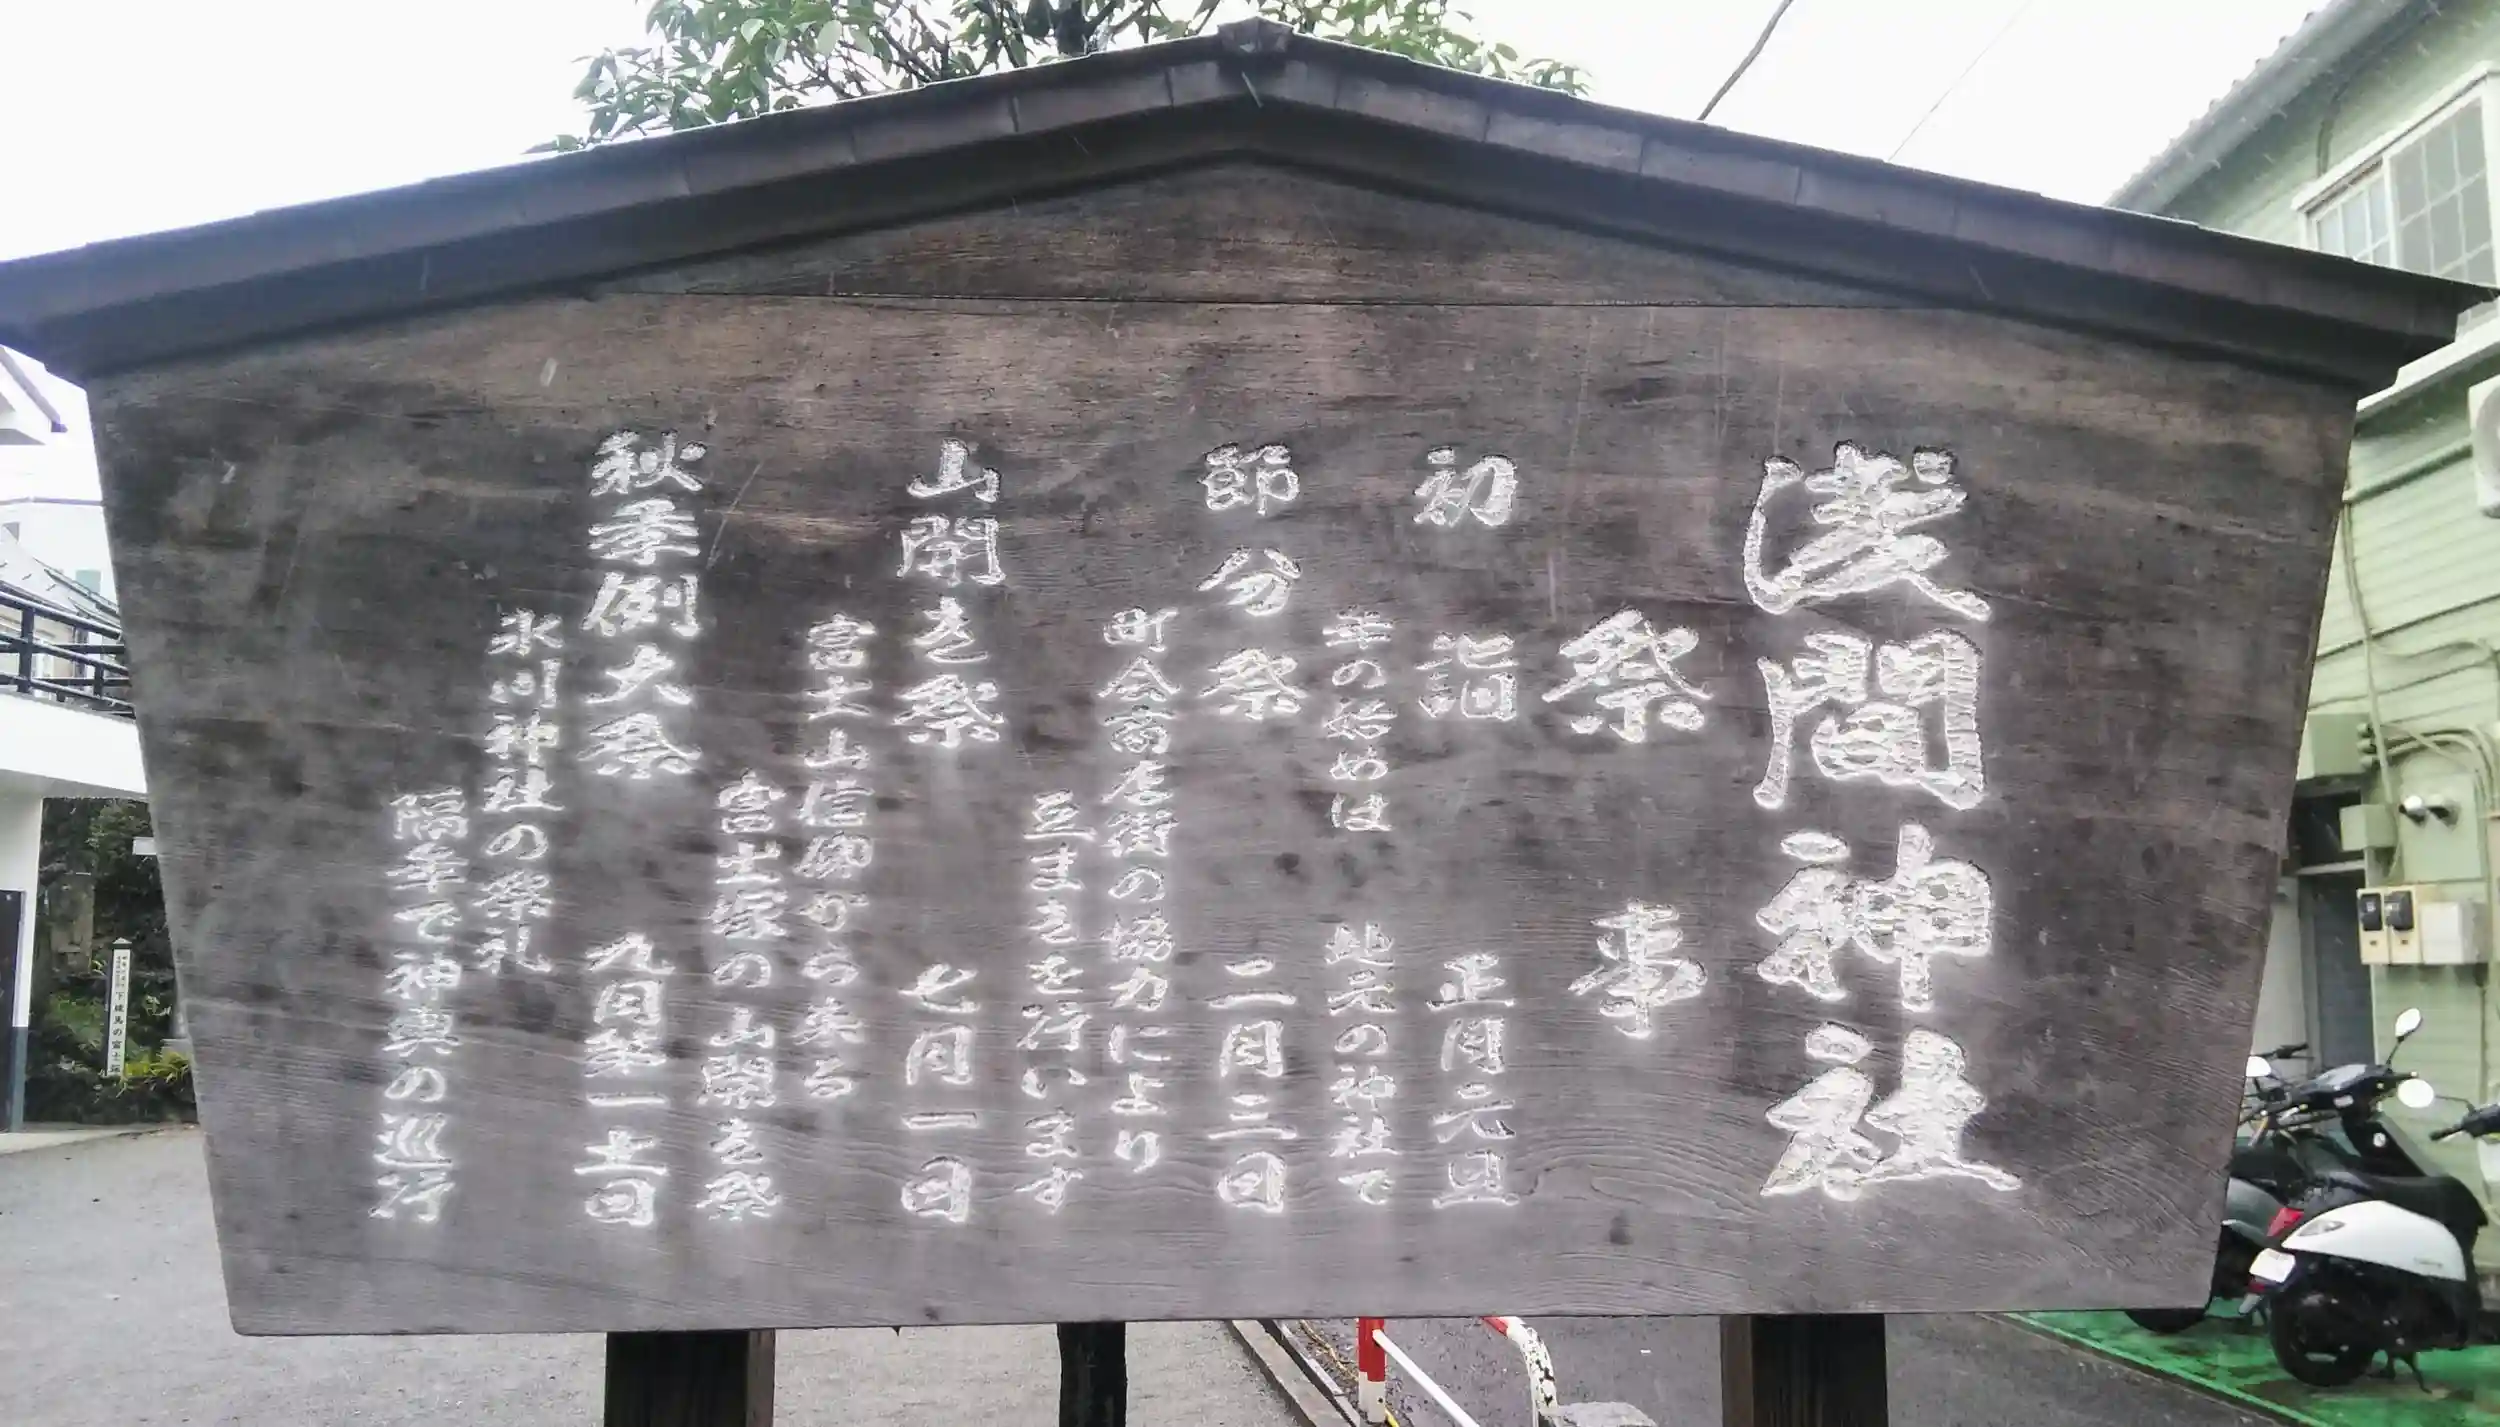 浅間神社
祭事
初詣 正月元旦
年の始めは 地元の神社で
節分祭 二月三日
町会商店街の協力により
豆まきを行います
山開き祭 七月一日
富士山信仰から来る
富士塚の山開き祭
秋季例大祭 九月第一土日
氷川神社の祭礼
隔年で神輿の巡行
下練馬の富士塚